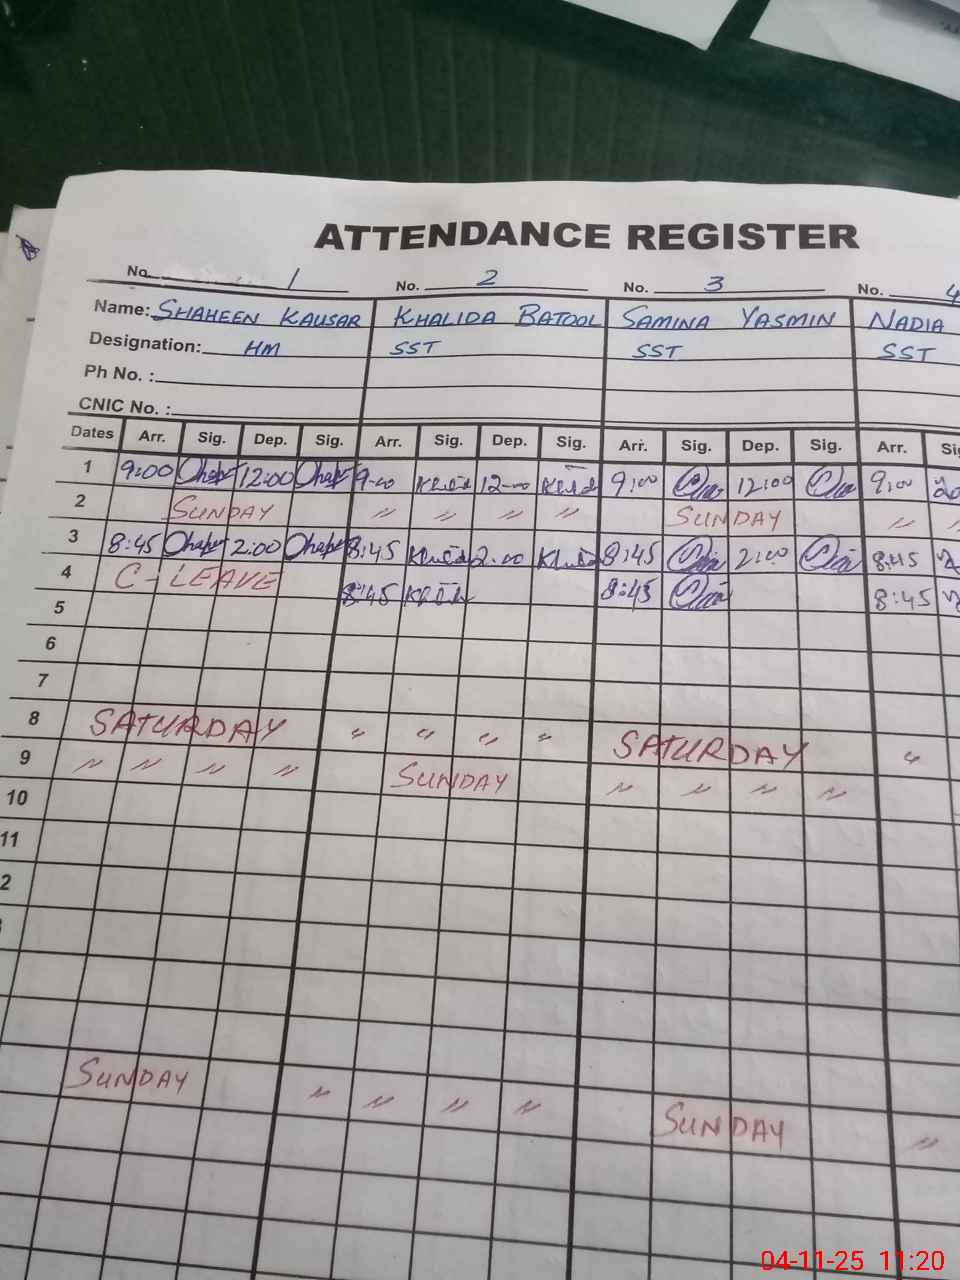 ATTENDANCE REGISTER
No. 1 No. 2 No. 3 No. 4
Name: SHAHEEN KAUSAR KHALIDA BATOOL SAMINA YASMIN NADIA
Designation: HM SST SST SST
Ph No. :
CNIC No. :
Dates Arr. Sig. Dep. Sig. Arr. Sig. Dep. Sig. Arr. Sig. Dep. Sig. Arr.
1 9:00 12:00 9-00 12-00 9:00 12:00 9:00
2 SUNDAY " " " " SUNDAY "
3 8:45 2:00 8:45 2:00 8:45 2:00 8:45
4 C-LEAVE 8:45 8:45 8:45
5
6
7
8 SATURDAY " " " " SATURDAY "
9 " " " " SUNDAY " " " "
10
11
2
SUNDAY " " " " SUNDAY "
04-11-25 11:20